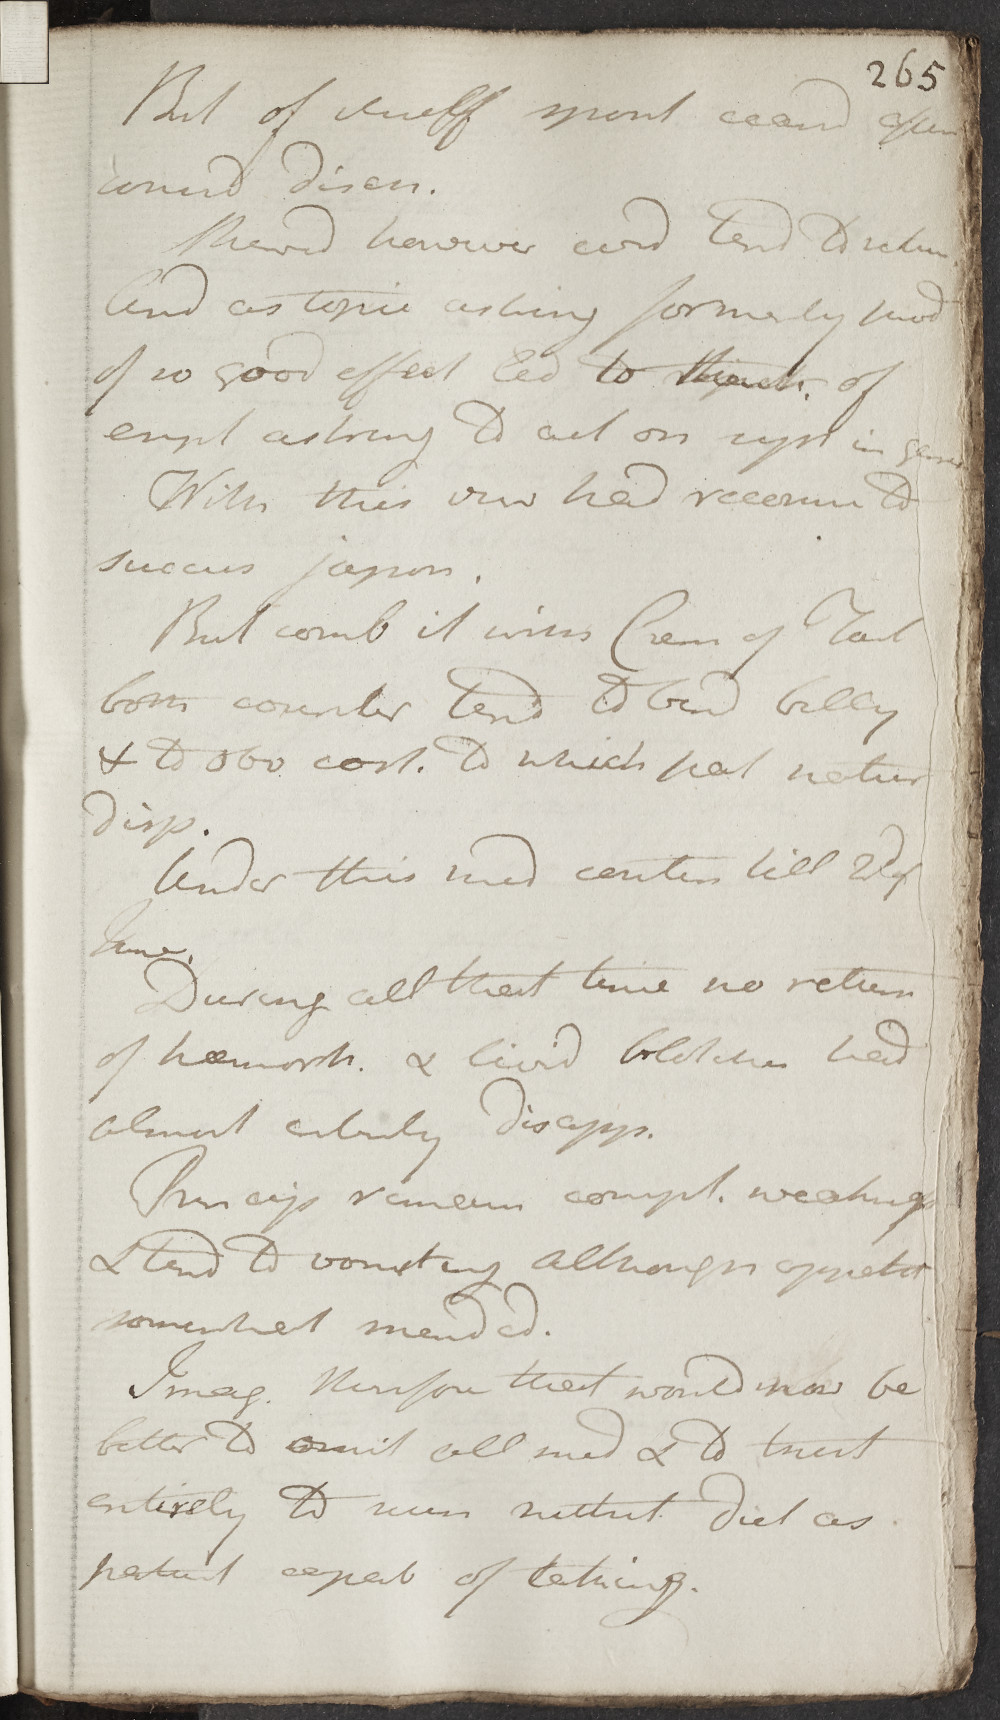 265
But of itself spont ceasd after
wound discon.
Shewd however cons tend to return.
And as topic astring formerly prod
of so good effect led to think. of
empl astring to act on syst in gener
With this view had recomm to
succus japon.
But comb it with Crem of Tart
both counter tend to bind belly
& to obv cost. to which pat natur
disp.
Under this med contin till 2d of
June.
During all that time no return
of hæmorrh. & livid blotches had
almost entirely disapp.
Princip remain compl. weakness
& tend to vomiting although appetit
somewhat mended.
Imag. therefore that would now be
better to omit all med & to trust
entirely to use nutrit diet as
patient capab of taking.